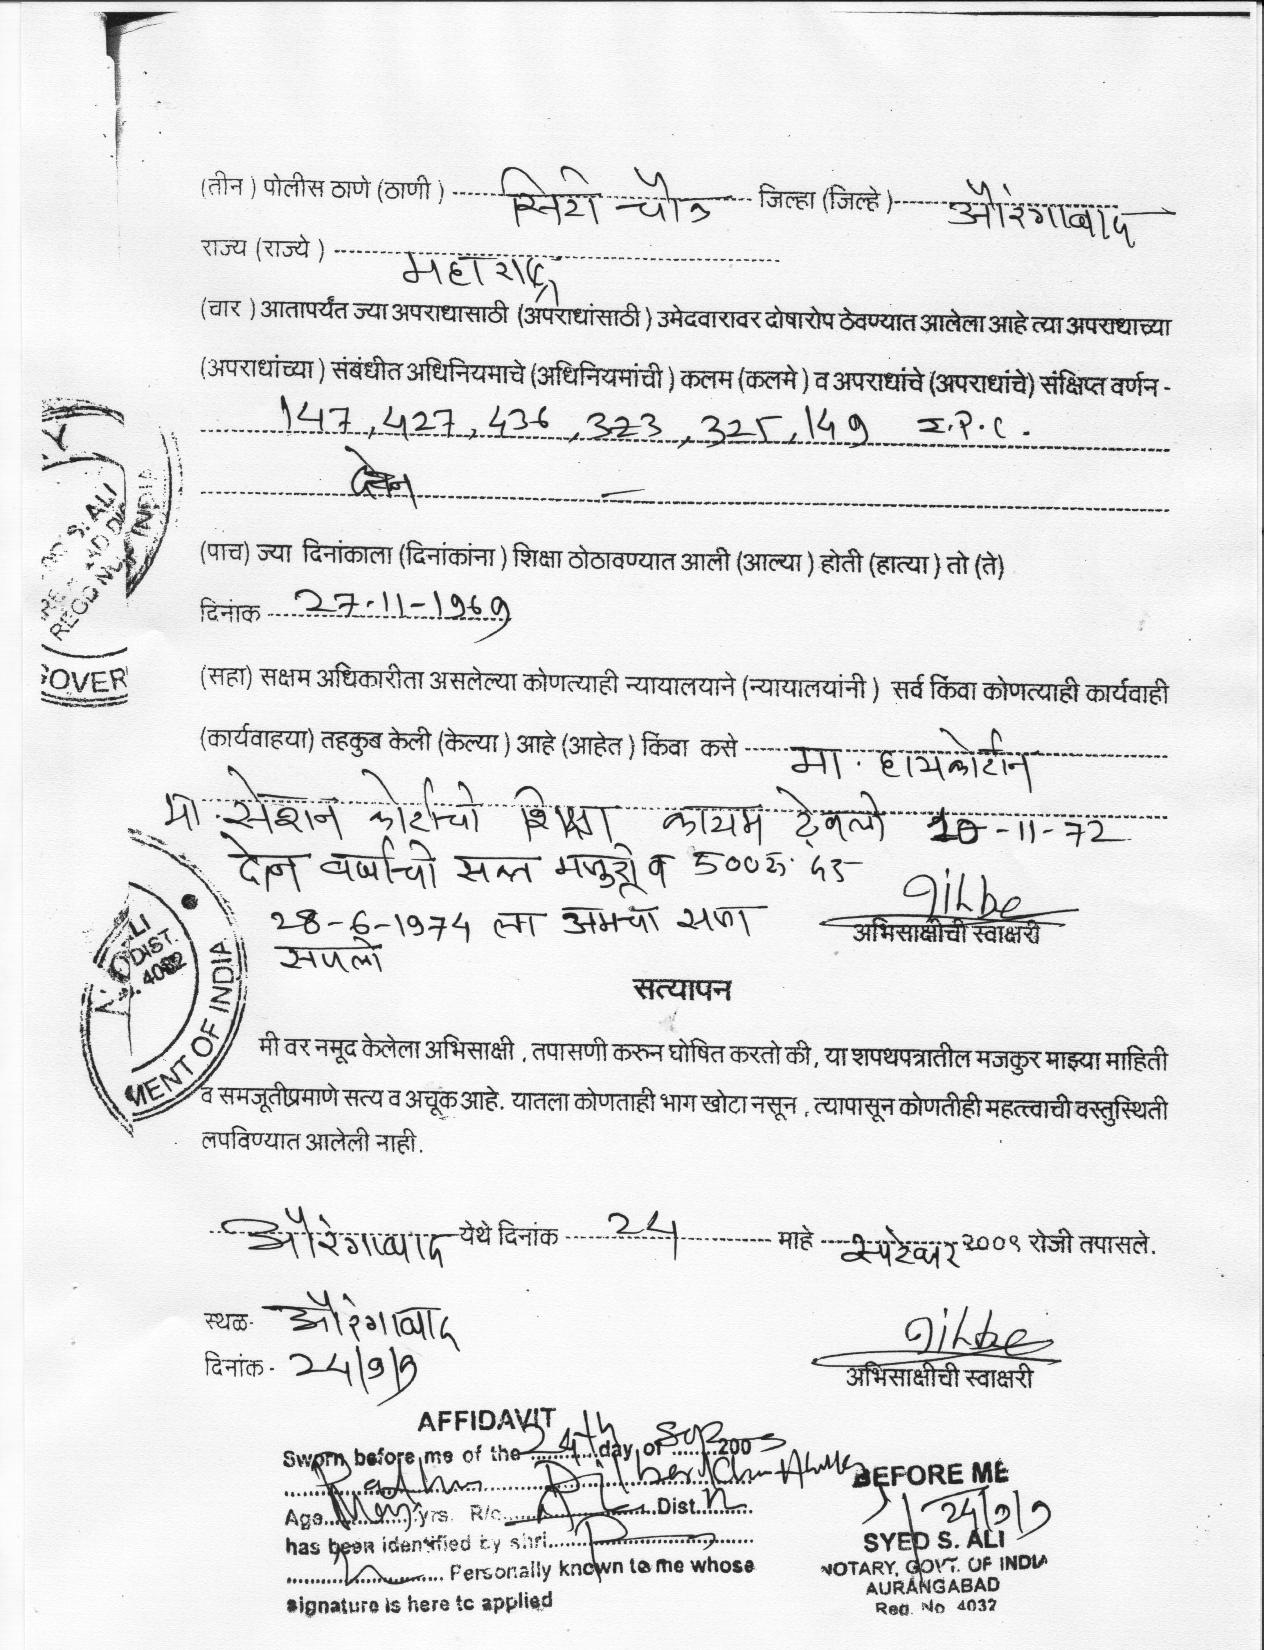 (तीन ) पोलीस ठाणे (ठाणी ) सिटी चौक जिल्हा (जिल्हे ) औरंगाबाद
राज्य (राज्ये ) महाराष्ट्र
(चार ) आतापर्यंत ज्या अपराधासाठी (अपराधांसाठी ) उमेदवारावर दोषारोप ठेवण्यात आलेला आहे त्या अपराधाच्या
(अपराधांच्या ) संबंधीत अधिनियमाचे (अधिनियमांची ) कलम (कलमे ) व अपराधांचे (अपराधांचे) संक्षिप्त वर्णन -
147, 427, 436, 323, 325, 149 I.P.C.
(पाच) ज्या दिनांकाला (दिनांकांना ) शिक्षा ठोठावण्यात आली (आल्या ) होती (हात्या ) तो (ते)
दिनांक 27-11-1969
(सहा) सक्षम अधिकारीता असलेल्या कोणत्याही न्यायालयाने (न्यायालयांनी ) सर्व किंवा कोणत्याही कार्यवाही
(कार्यवाहया) तहकुब केली (केल्या ) आहे (आहेत ) किंवा कसे मा. हायकोर्टान
मा. सेशन कोर्टाची शिक्षा कायम ठेवली 10-11-72
दोन वर्षाची सक्त मजुरी व 500रु. दंड
28-6-1974 ला आमची सजा
संपली
अभिसाक्षीची स्वाक्षरी
सत्यापन
मी वर नमूद केलेला अभिसाक्षी , तपासणी करुन घोषित करतो की, या शपथपत्रातील मजकुर माझ्या माहिती
व समजूतीप्रमाणे सत्य व अचूक आहे. यातला कोणताही भाग खोटा नसून , त्यापासून कोणतीही महत्त्वाची वस्तुस्थिती
लपविण्यात आलेली नाही.
औरंगाबाद येथे दिनांक 24 माहे सप्टेंबर २००९ रोजी तपासले.
स्थळ- औरंगाबाद
दिनांक - 24/9/9
अभिसाक्षीची स्वाक्षरी
AFFIDAVIT
Sworn before me of the 24th day of Sep 200
Age yrs. R/o Dist
has been identified by shri
Personally known to me whose
signature is here to applied
BEFORE ME
24/9/9
SYED S. ALI
NOTARY, GOVT. OF INDIA
AURANGABAD
Reg. No 4032
S. ALI
REGD NO
INDIA
GOVER
ALI
DIST.
4032
MENT OF INDIA